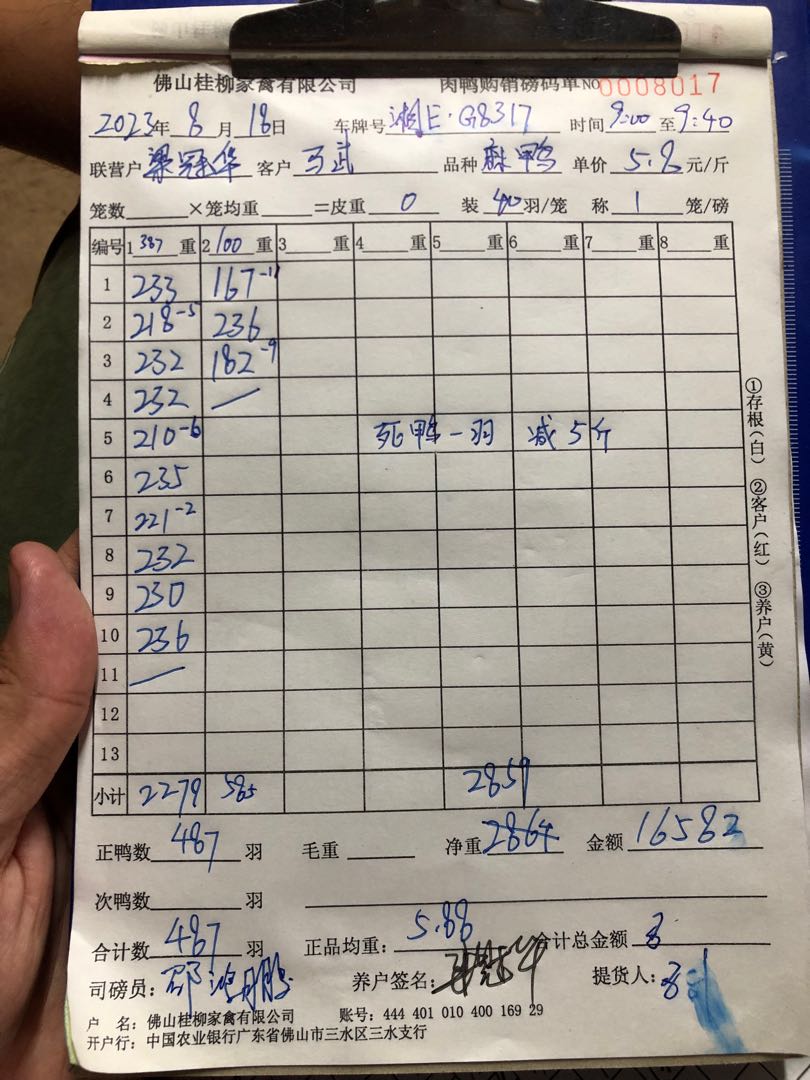 佛山桂柳家禽有限公司 肉鸭购销磅码单 NO 0008017
2023年8月18日 车牌号 湘E·G8317 时间 9:00 至 9:40
联营户 梁冠华 客户 马武 品种 麻鸭 单价 5.8 元/斤
笼数 ×笼均重 =皮重 0 装 40 羽/笼 称 1 笼/磅
编号 1 387 重 2 100 重 3 重 4 重 5 重 6 重 7 重 8 重
1 233 167-11
2 218-5 236
3 232 182-9
4 232 —
5 210-6 死鸭一羽 减5斤
6 235
7 221-2
8 232
9 230
10 236
11 —
12
13
小计 2279 585 2859
正鸭数 487 羽 毛重 净重 2864 金额 16582
次鸭数 羽
合计数 487 羽 正品均重: 5.88 合计总金额
司磅员: 养户签名: 提货人:
户 名: 佛山桂柳家禽有限公司 账号: 444 401 010 400 169 29
开户行: 中国农业银行广东省佛山市三水区三水支行
①存根(白) ②客户(红) ③养户(黄)